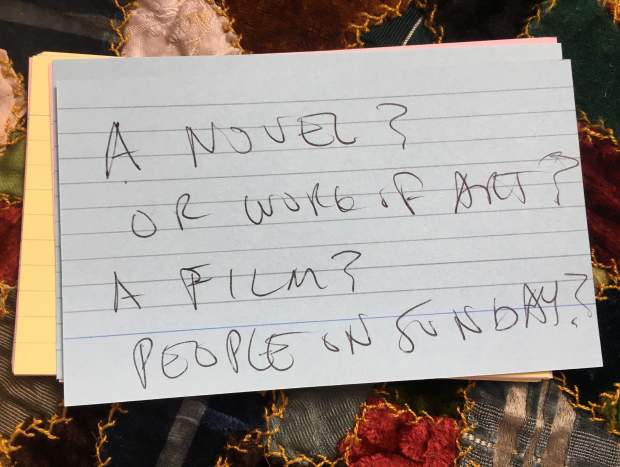 A NOVEL?
OR WORK OF ART?
A FILM?
PEOPLE ON SUNDAY?